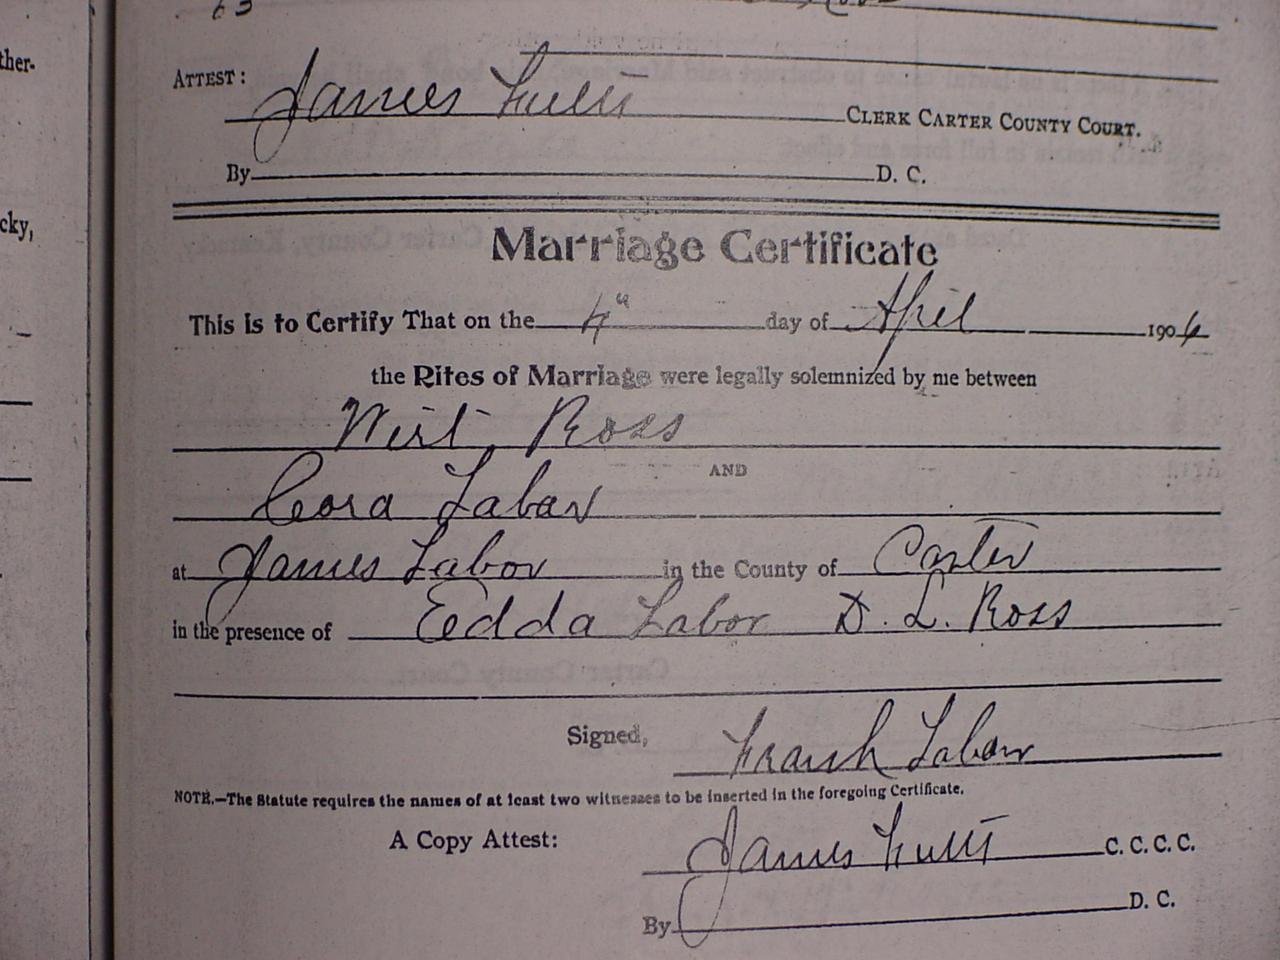 ther-
cky,
63
ATTEST: James Fultz CLERK CARTER COUNTY COURT.
By D. C.
Marriage Certificate
This is to Certify That on the 4" day of April 1906
the Rites of Marriage were legally solemnized by me between
Wirt Ross
AND
Cora Labar
at James Labor in the County of Carter
in the presence of Eedda Labor D. L. Ross
Signed, Frank Labar
NOTE.—The Statute requires the names of at least two witnesses to be inserted in the foregoing Certificate.
A Copy Attest: James Fultz C. C. C. C.
By D. C.